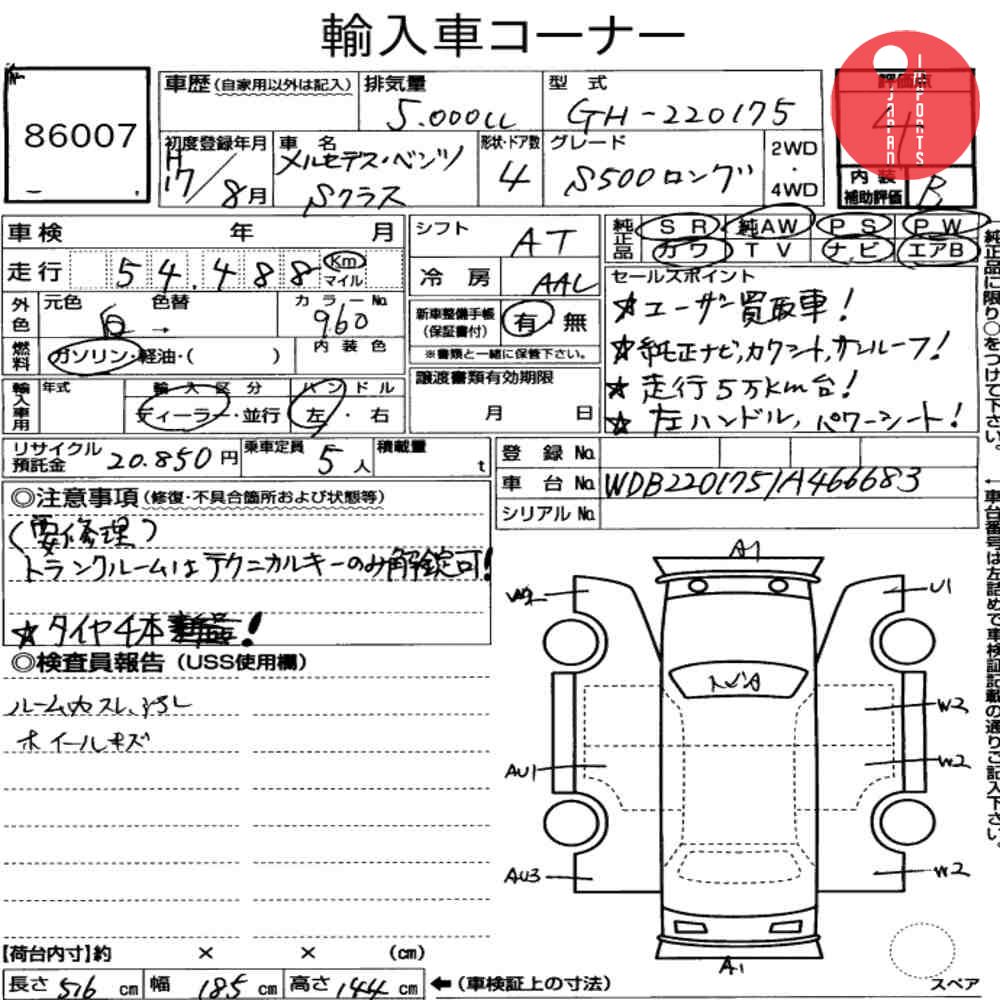 輸入車コーナー
86007
車歴(自家用以外は記入)
排気量
5.000cc
型式
GH-220175
評価点
4
JAPAN IMPORTS
初度登録年月
H17/8月
車名
メルセデス・ベンツ
Sクラス
形状・ドア数
4
グレード
S500ロング
2WD
・
4WD
内装
補助評価
B
車検 年 月
シフト
AT
純正品
SR 純AW PS PW
カワ TV ナビ エアB
走行 54.488 Km
マイル
冷房 AAC
セールスポイント
★ユーザー買取車!
★純正ナビ,カワシート,サンルーフ!
★走行5万km台!
★左ハンドル,パワーシート!
外色
元色 色替
白 →
カラーNo.
960
内装色
新車整備手帳
(保証書付)
有・無
※書類と一緒に保管下さい。
燃料
ガソリン・軽油・( )
譲渡書類有効期限
月 日
輸入車用
年式
輸入区分
ディーラー・並行
ハンドル
左・右
純正品に限り○をつけて下さい。
リサイクル
預託金
20.850円
乗車定員
5人
積載量
t
登録No.
車台No. WDB2201751A466683
シリアルNo.
←車台番号は左詰めで車検証記載の通りご記入下さい。
◎注意事項(修復・不具合箇所および状態等)
(要修理)
トランクルームはテクニカルキーのみ解錠可!
★タイヤ4本新品!
◎検査員報告(USS使用欄)
ルーム内スレ、ヨゴレ
ホイールキズ
A1
W2
U1
トビA
W2
AU1
W2
AU3
W2
A1
スペア
【荷台内寸】約 × × (cm)
長さ 516 cm 幅 185 cm 高さ 144 cm ←(車検証上の寸法)